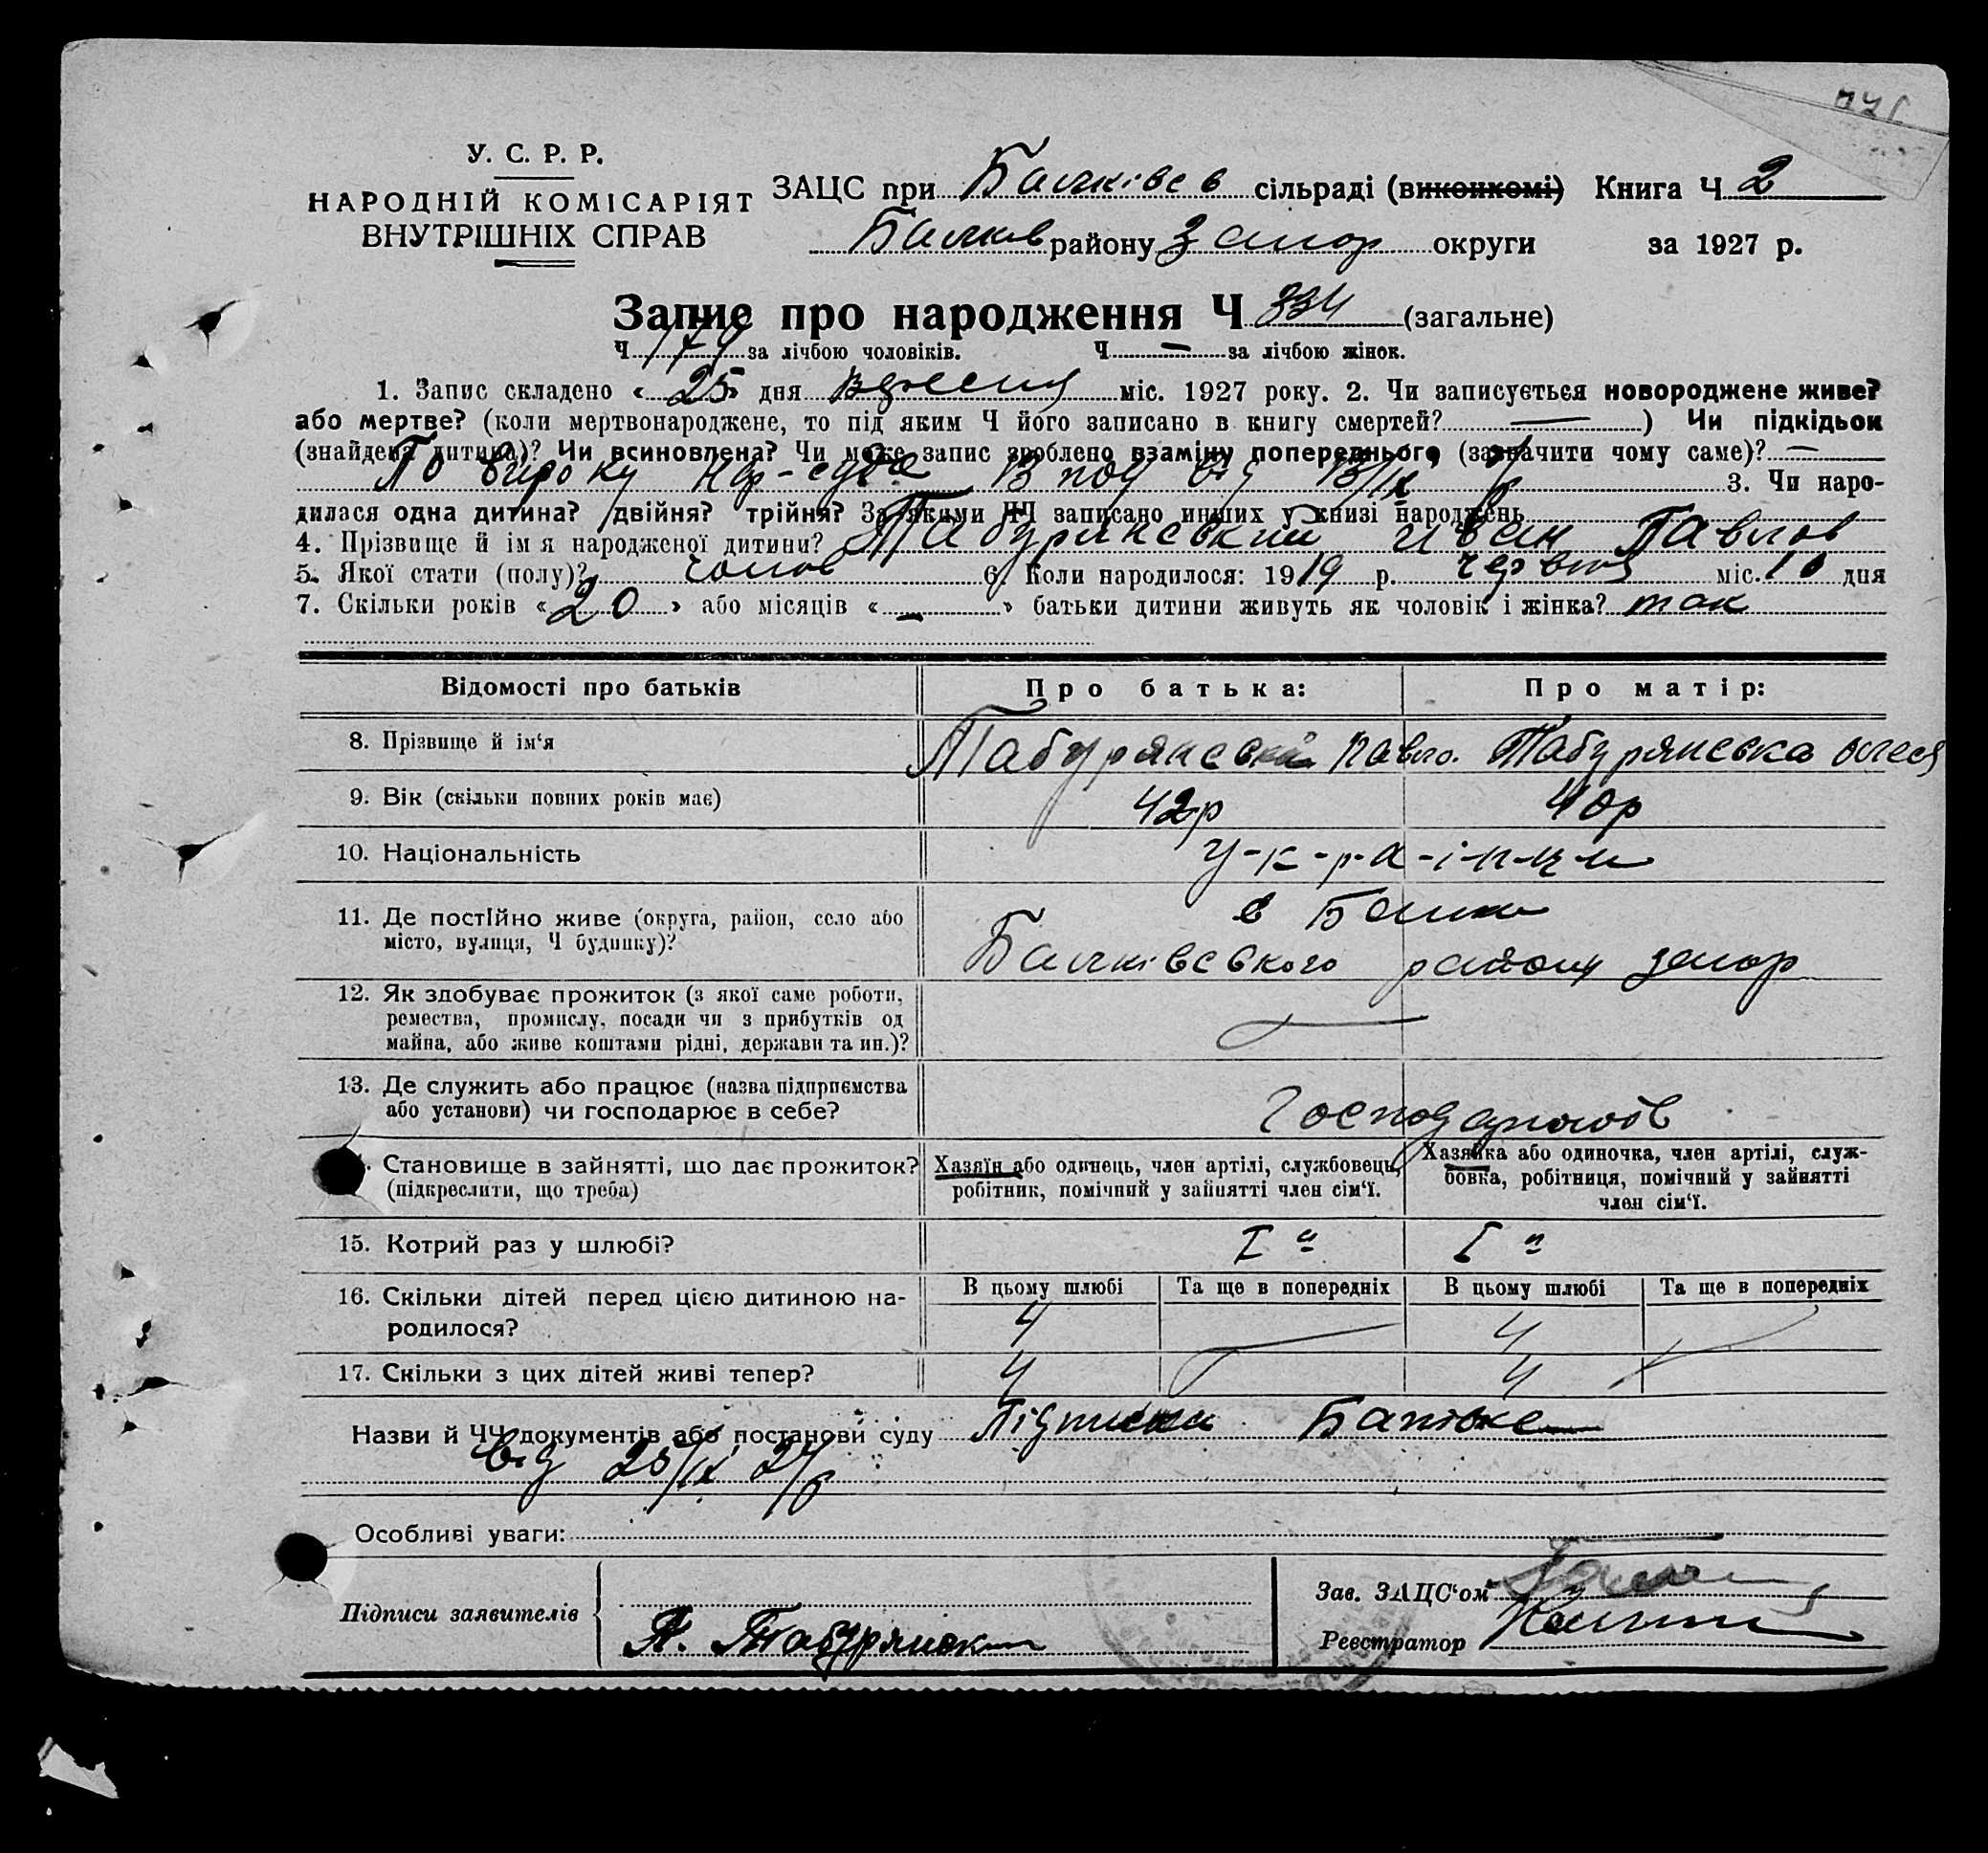 У. С. Р. Р.
НАРОДНІЙ КОМІСАРІЯТ
ВНУТРІШНІХ СПРАВ
ЗАЦС при Балківсв сільраді (виконкомі) Книга Ч 2
Балков району Запор округи за 1927 р.
Запис про народження Ч 334 (загальне)
Ч 174 за лічбою чоловіків. Ч — за лічбою жінок.
1. Запис складено « 25 » дня вересня міс. 1927 року. 2. Чи записується новороджене живе?
або мертве? (коли мертвонароджене, то під яким Ч його записано в книгу смертей? — ) Чи підкідьок
(знайдена дитина)? Чи всиновлена? Чи може запис зроблено взаміну попереднього (зазначити чому саме)? —
По вироку нар-суда 13 від 13/IX 3. Чи наро-
дилася одна дитина? двійня? трійня? За якими ЧЧ записано инших у книзі народжень
4. Прізвище й імя народженої дитини? Табурянський Иван Павлов
5. Якої стати (полу)? чолов 6. Коли народилося: 1919 р. червня міс. 10 дня
7. Скільки років « 20 » або місяців « — » батьки дитини живуть як чоловік і жінка? так
Відомості про батьків Про батька: Про матір:
8. Прізвище й ім'я Табурянськи Павло. Табурянська
9. Вік (скільки повних років має) 42р 40р
10. Національність у-к-р-а-і-н-ц-и
11. Де постійно живе (округа, район, село або в Балки
місто, вулиця, Ч будинку)? Балківського району запор
12. Як здобуває прожиток (з якої саме роботи,
ремества, промислу, посади чи з прибутків од
майна, або живе коштами рідні, держави та ин.)? —
13. Де служить або працює (назва підприємства
або установи) чи господарює в себе?
Становище в зайнятті, що дає прожиток? Хазяїн або одинець, член артілі, службовець, Хазяйка або одиночка, член артілі, служ-
(підкреслити, що треба) робітник, помічний у зайнятті член сім'ї. бовка, робітниця, помічний у зайнятті
член сім'ї.
15. Котрий раз у шлюбі? I й I й
16. Скільки дітей перед цією дитиною на- В цьому шлюбі Та ще в попередніх В цьому шлюбі Та ще в попередніх
родилося? 4 — 4 —
17. Скільки з цих дітей живі тепер? 4 — 4 —
Назви й ЧЧ документів або постанови суду Підписка
від 25/IX 27р
Особливі уваги:
Підписи заявителів
П. Табурянски
Зав. ЗАЦС'ом
Реєстратор